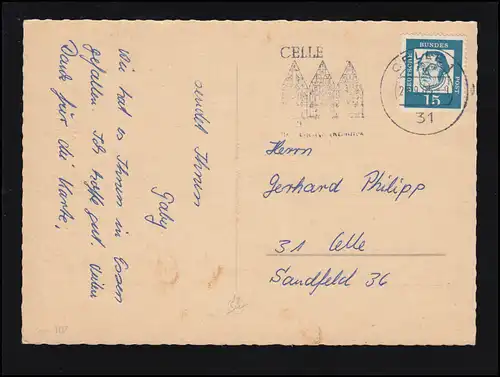 Wie hat es Ihnen in Essen
gefallen. Ich hoffe gut. Vielen
Dank für die Karte,
sendet Ihnen
Gaby
CELLE
31
DEUTSCHE
BUNDES
POST
15
Herrn
Gerhard Philipp
31 Celle
Sandfeld 36